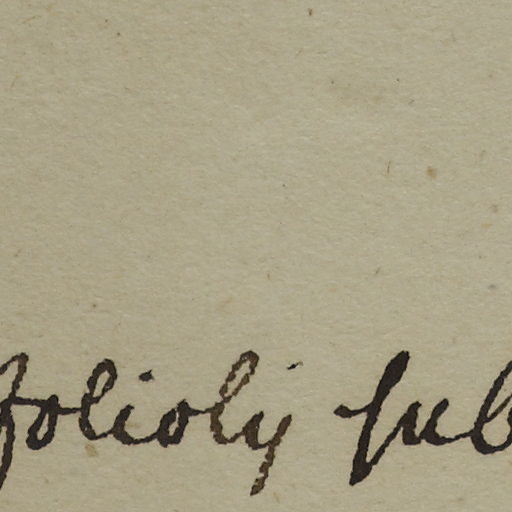 folioly sub